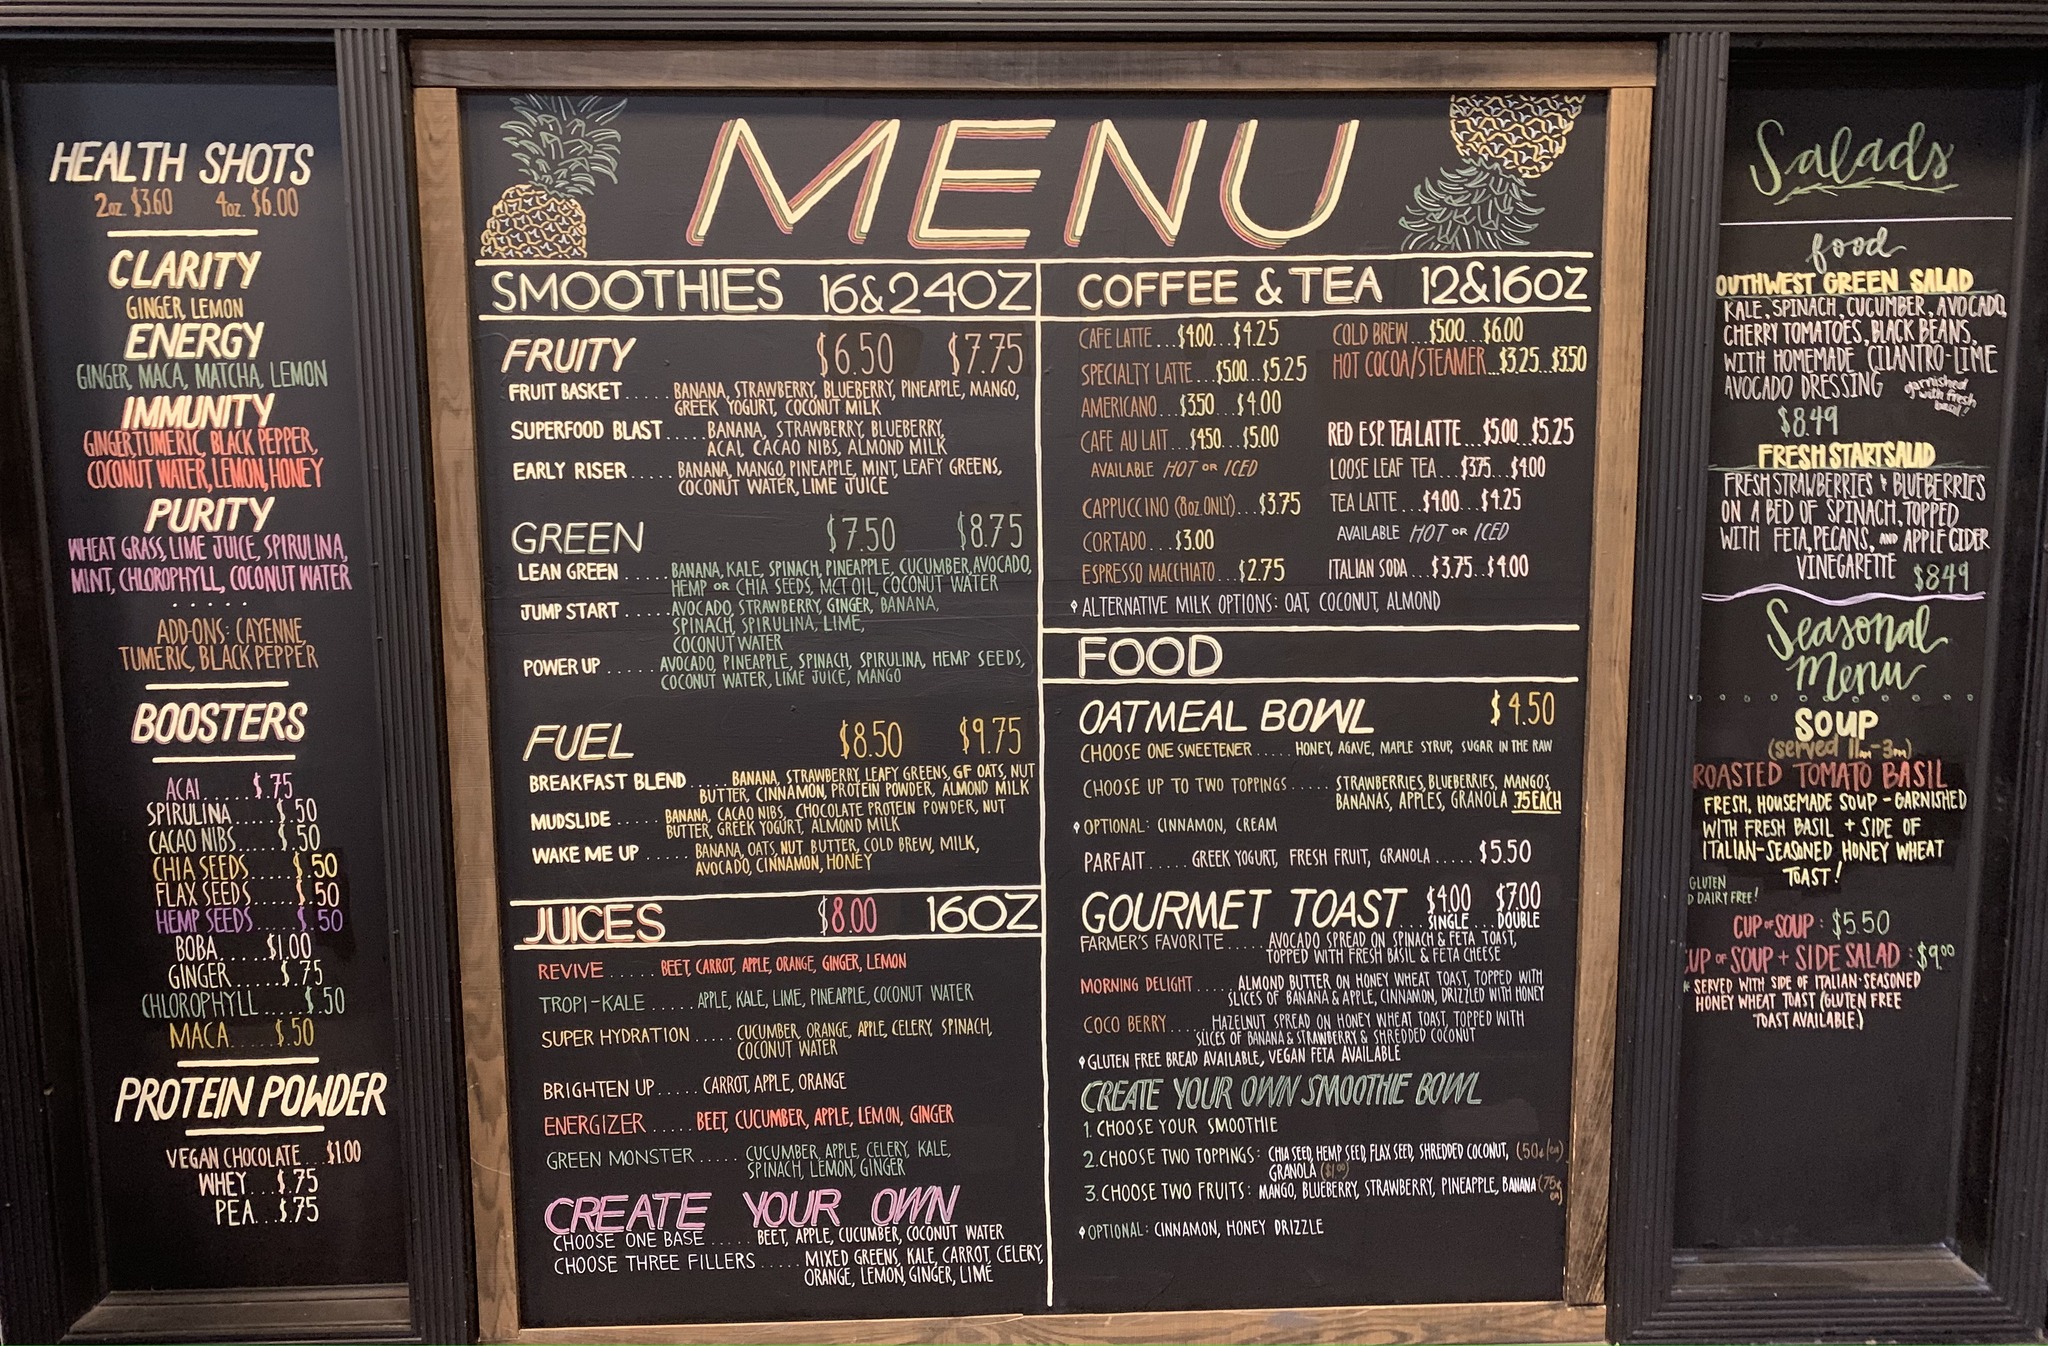 HEALTH SHOTS
2oz. $3.60 4oz. $6.00
CLARITY
GINGER, LEMON
ENERGY
GINGER, MACA, MATCHA, LEMON
IMMUNITY
GINGER, TUMERIC, BLACK PEPPER,
COCONUT WATER, LEMON, HONEY
PURITY
WHEAT GRASS, LIME JUICE, SPIRULINA,
MINT, CHLOROPHYLL, COCONUT WATER
.....
ADD-ONS: CAYENNE,
TUMERIC, BLACK PEPPER
BOOSTERS
ACAI.....$.75
SPIRULINA....$.50
CACAO NIBS...$.50
CHIA SEEDS....$.50
FLAX SEEDS....$.50
HEMP SEEDS....$.50
BOBA....$1.00
GINGER....$.75
CHLOROPHYLL....$.50
MACA.....$.50
PROTEIN POWDER
VEGAN CHOCOLATE...$1.00
WHEY...$.75
PEA...$.75
MENU
SMOOTHIES 16&24OZ
FRUITY $6.50 $7.75
FRUIT BASKET ..... BANANA, STRAWBERRY, BLUEBERRY, PINEAPPLE, MANGO,
GREEK YOGURT, COCONUT MILK
SUPERFOOD BLAST ..... BANANA, STRAWBERRY, BLUEBERRY,
ACAI, CACAO NIBS, ALMOND MILK
EARLY RISER ..... BANANA, MANGO, PINEAPPLE, MINT, LEAFY GREENS,
COCONUT WATER, LIME JUICE
GREEN $7.50 $8.75
LEAN GREEN ..... BANANA, KALE, SPINACH, PINEAPPLE, CUCUMBER, AVOCADO,
HEMP OR CHIA SEEDS, MCT OIL, COCONUT WATER
JUMP START ..... AVOCADO, STRAWBERRY, GINGER, BANANA,
SPINACH, SPIRULINA, LIME,
COCONUT WATER
POWER UP ..... AVOCADO, PINEAPPLE, SPINACH, SPIRULINA, HEMP SEEDS,
COCONUT WATER, LIME JUICE, MANGO
FUEL $8.50 $9.75
BREAKFAST BLEND ..... BANANA, STRAWBERRY, LEAFY GREENS, GF OATS, NUT
BUTTER, CINNAMON, PROTEIN POWDER, ALMOND MILK
MUDSLIDE ..... BANANA, CACAO NIBS, CHOCOLATE PROTEIN POWDER, NUT
BUTTER, GREEK YOGURT, ALMOND MILK
WAKE ME UP ..... BANANA, OATS, NUT BUTTER, COLD BREW, MILK,
AVOCADO, CINNAMON, HONEY
JUICES $8.00 16OZ
REVIVE ..... BEET, CARROT, APPLE, ORANGE, GINGER, LEMON
TROPI-KALE ..... APPLE, KALE, LIME, PINEAPPLE, COCONUT WATER
SUPER HYDRATION ..... CUCUMBER, ORANGE, APPLE, CELERY, SPINACH,
COCONUT WATER
BRIGHTEN UP ..... CARROT, APPLE, ORANGE
ENERGIZER ..... BEET, CUCUMBER, APPLE, LEMON, GINGER
GREEN MONSTER ..... CUCUMBER, APPLE, CELERY, KALE,
SPINACH, LEMON, GINGER
CREATE YOUR OWN
CHOOSE ONE BASE ..... BEET, APPLE, CUCUMBER, COCONUT WATER
CHOOSE THREE FILLERS ..... MIXED GREENS, KALE, CARROT, CELERY,
ORANGE, LEMON, GINGER, LIME
COFFEE & TEA 12&16OZ
CAFE LATTE ... $4.00 ... $4.25
SPECIALTY LATTE ... $5.00 ... $5.25
AMERICANO ... $3.50 ... $4.00
CAFE AU LAIT ... $4.50 ... $5.00
AVAILABLE HOT OR ICED
CAPPUCCINO (8oz. ONLY)... $3.75
CORTADO ... $3.00
ESPRESSO MACCHIATO ... $2.75
COLD BREW ... $5.00 ... $6.00
HOT COCOA/STEAMER...$3.25...$3.50
RED ESP. TEA LATTE ... $5.00 ... $5.25
LOOSE LEAF TEA ... $3.75 ... $4.00
TEA LATTE ... $4.00 ... $4.25
AVAILABLE HOT OR ICED
ITALIAN SODA ... $3.75 ... $4.00
ALTERNATIVE MILK OPTIONS: OAT, COCONUT, ALMOND
FOOD
OATMEAL BOWL $4.50
CHOOSE ONE SWEETENER ..... HONEY, AGAVE, MAPLE SYRUP, SUGAR IN THE RAW
CHOOSE UP TO TWO TOPPINGS ..... STRAWBERRIES, BLUEBERRIES, MANGOS,
BANANAS, APPLES, GRANOLA .75 EACH
OPTIONAL: CINNAMON, CREAM
PARFAIT ..... GREEK YOGURT, FRESH FRUIT, GRANOLA ..... $5.50
GOURMET TOAST $4.00 $7.00
SINGLE ... DOUBLE
FARMER'S FAVORITE ..... AVOCADO SPREAD ON SPINACH & FETA TOAST,
TOPPED WITH FRESH BASIL & FETA CHEESE
MORNING DELIGHT ..... ALMOND BUTTER ON HONEY WHEAT TOAST, TOPPED WITH
SLICES OF BANANA & APPLE, CINNAMON, DRIZZLED WITH HONEY
COCO BERRY ..... HAZELNUT SPREAD ON HONEY WHEAT TOAST, TOPPED WITH
SLICES OF BANANA & STRAWBERRY & SHREDDED COCONUT
GLUTEN FREE BREAD AVAILABLE, VEGAN FETA AVAILABLE
CREATE YOUR OWN SMOOTHIE BOWL
1. CHOOSE YOUR SMOOTHIE
2. CHOOSE TWO TOPPINGS: CHIA SEED, HEMP SEED, FLAX SEED, SHREDDED COCONUT, (50¢/ea)
GRANOLA ($1.00)
3. CHOOSE TWO FRUITS: MANGO, BLUEBERRY, STRAWBERRY, PINEAPPLE, BANANA (75¢ ea)
OPTIONAL: CINNAMON, HONEY DRIZZLE
Salads
food
OUTHWEST GREEN SALAD
KALE, SPINACH, CUCUMBER, AVOCADO,
CHERRY TOMATOES, BLACK BEANS,
WITH HOMEMADE CILANTRO-LIME
AVOCADO DRESSING garnished with fresh basil!
$8.49
FRESH START SALAD
FRESH STRAWBERRIES & BLUEBERRIES
ON A BED OF SPINACH, TOPPED
WITH FETA, PECANS, AND APPLE CIDER
VINEGARETTE $8.49
Seasonal
Menu
SOUP
(served 11am-3pm)
ROASTED TOMATO BASIL
FRESH, HOUSEMADE SOUP - GARNISHED
WITH FRESH BASIL + SIDE OF
ITALIAN-SEASONED HONEY WHEAT
TOAST!
GLUTEN
D DAIRY FREE!
CUP OF SOUP: $5.50
CUP OF SOUP + SIDE SALAD: $9.00
* SERVED WITH SIDE OF ITALIAN-SEASONED
HONEY WHEAT TOAST (GLUTEN FREE
TOAST AVAILABLE.)